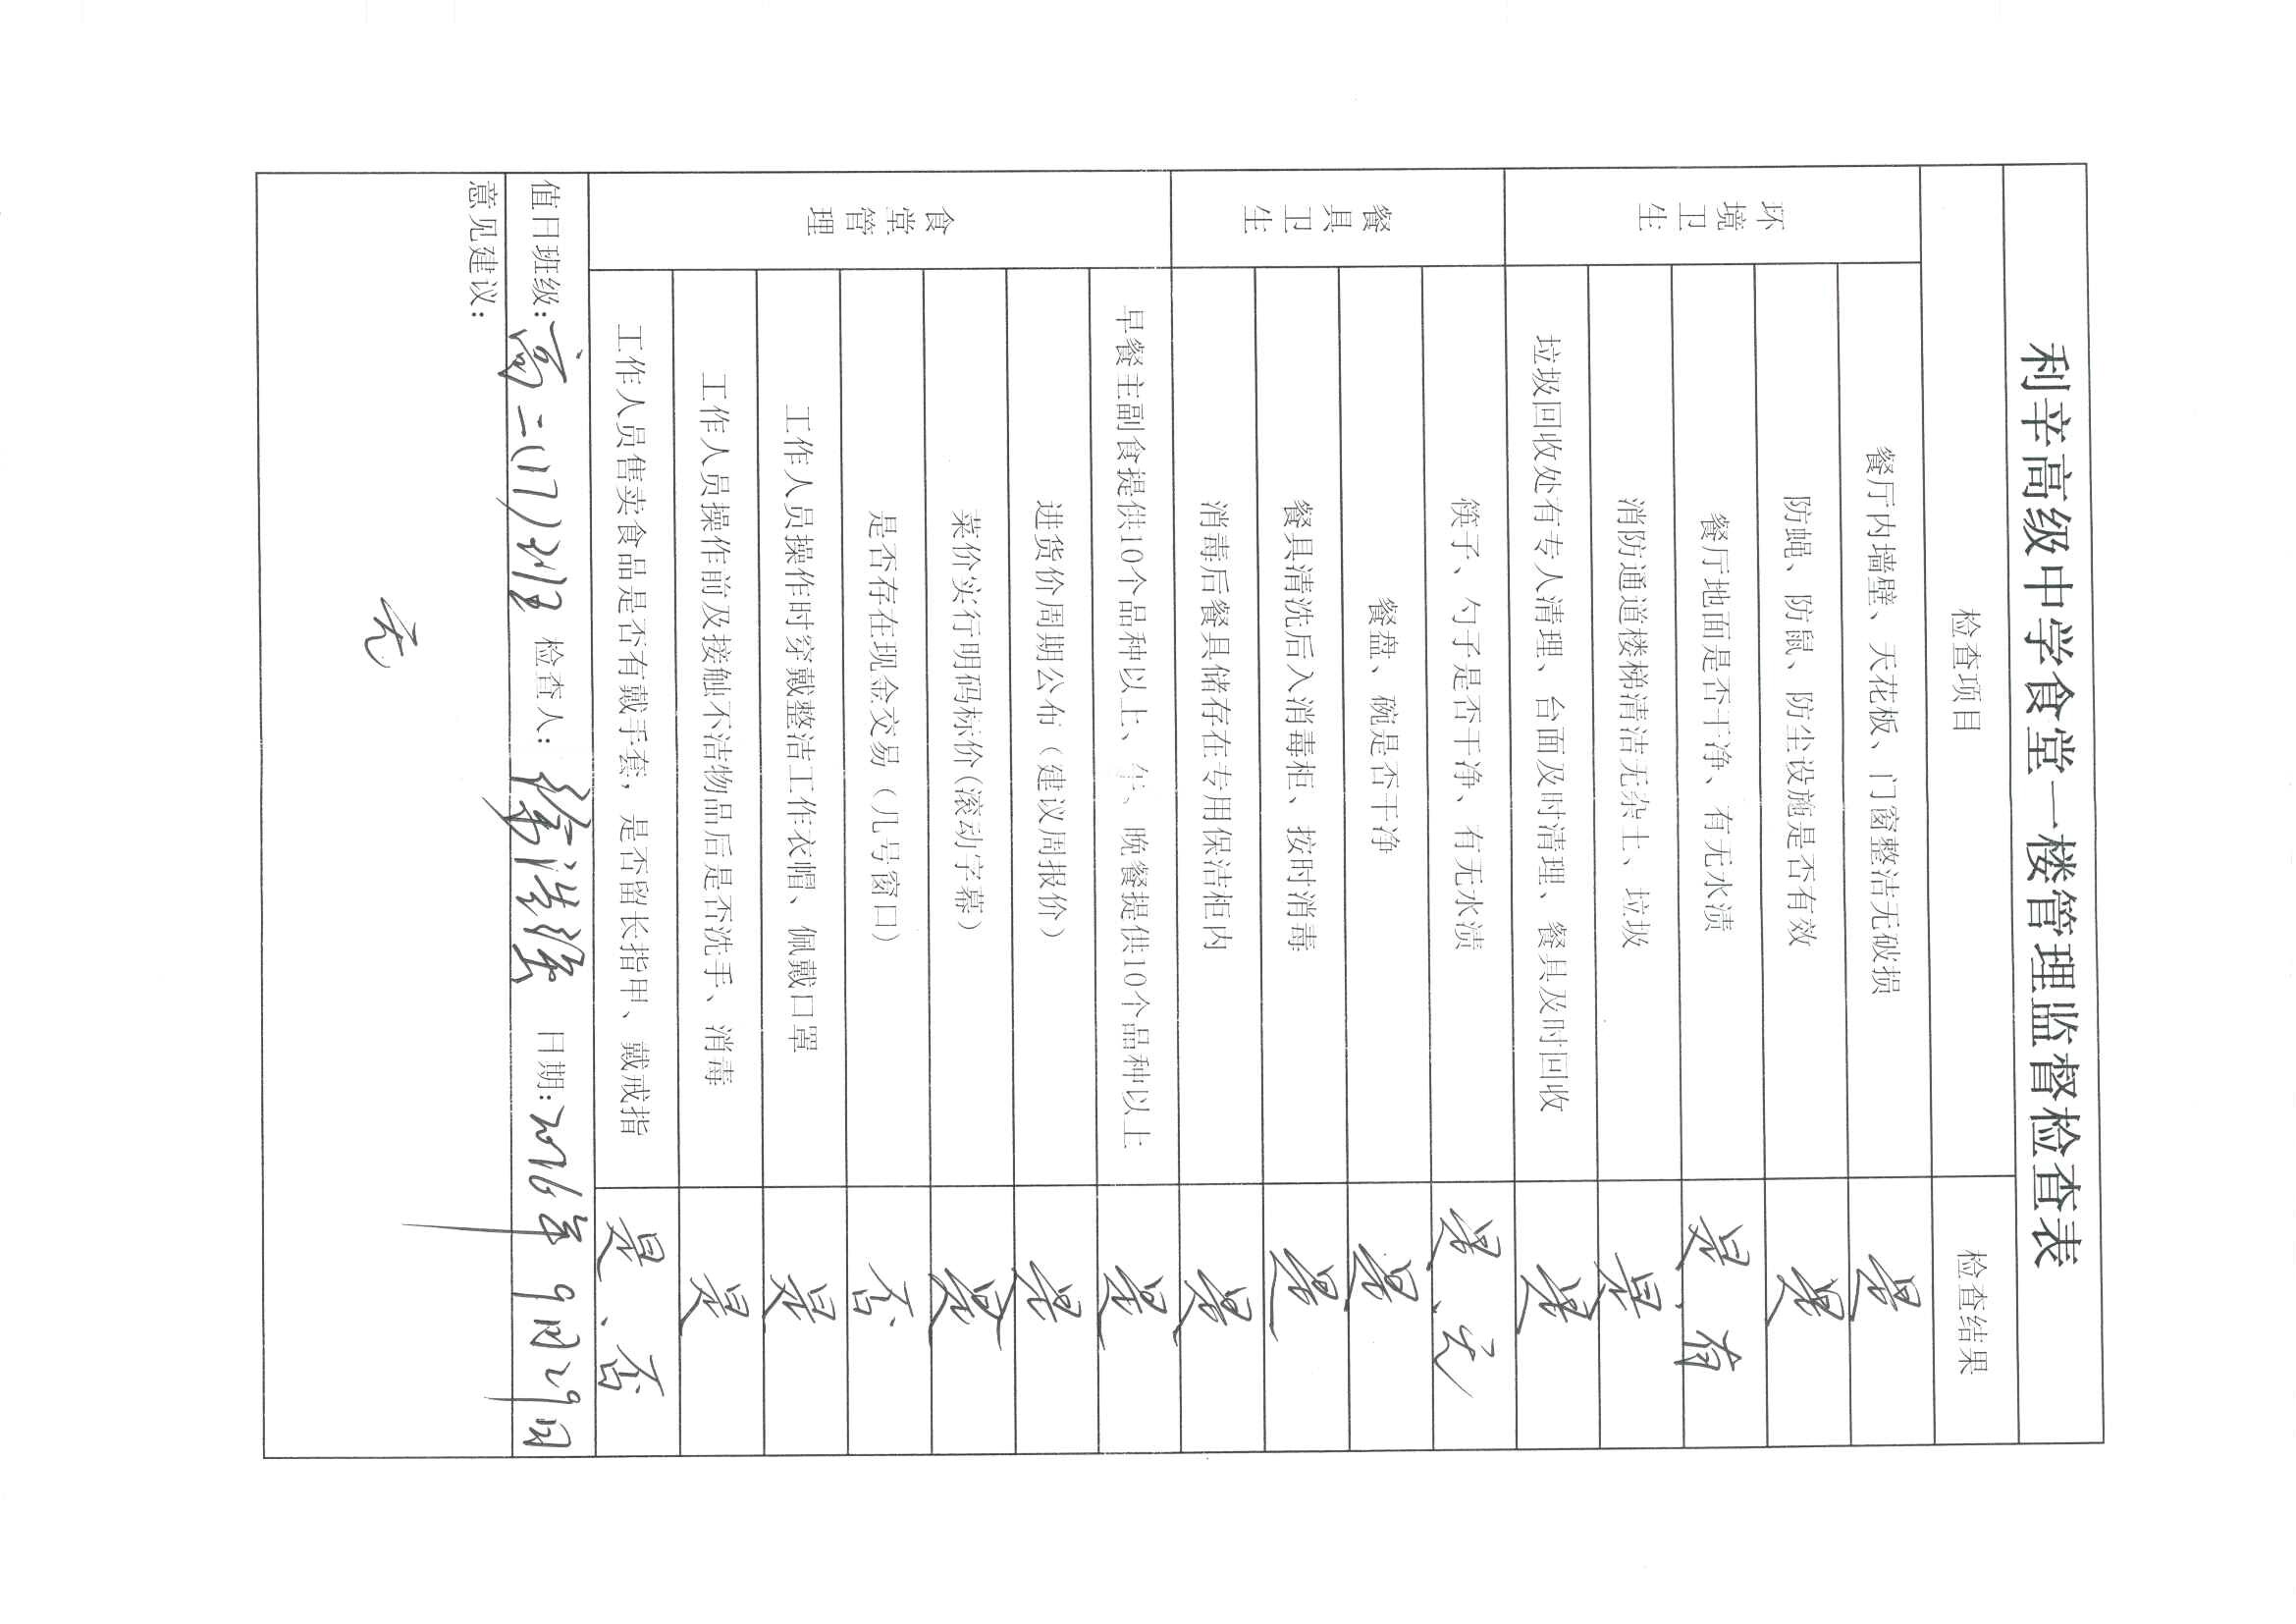 利辛高级中学食堂一楼管理监督检查表
检查项目 检查结果
环境卫生
餐厅内墙壁、天花板、门窗整洁无破损 是
防蝇、防鼠、防尘设施是否有效 是
餐厅地面是否干净、有无水渍 是、有
消防通道楼梯清洁无杂土、垃圾 是
垃圾回收处有专人清理、台面及时清理、餐具及时回收 是
餐具卫生
筷子、勺子是否干净、有无水渍 是、无
餐盘、碗是否干净 是
餐具清洗后入消毒柜、按时消毒 是
消毒后餐具储存在专用保洁柜内 是
食堂管理
早餐主副食提供10个品种以上、午、晚餐提供10个品种以上 是
进货价周期公布（建议周报价） 是
菜价实行明码标价(滚动字幕) 是
是否存在现金交易（几号窗口） 否
工作人员操作时穿戴整洁工作衣帽、佩戴口罩 是
工作人员操作前及接触不洁物品后是否洗手、消毒 是
工作人员售卖食品是否有戴手套，是否留长指甲、戴戒指 是、否
值日班级：高二(17)班 检查人： 日期：2016年9月29日
意见建议：
无